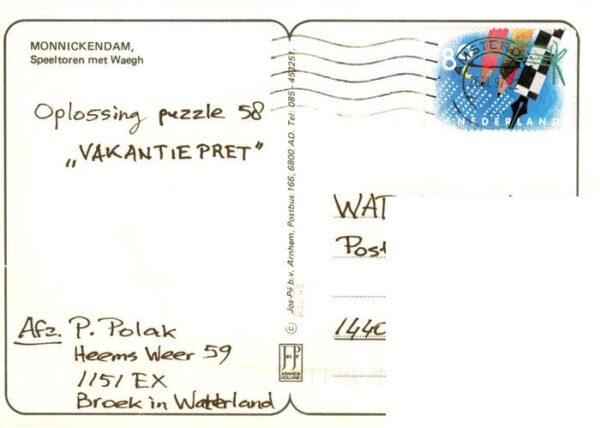 MONNICKENDAM,
Speeltoren met Waegh
Oplossing puzzle 58
„VAKANTIEPRET"
Afz. P. Polak
Heems Weer 59
1151 EX
Broek in Waterland
© Jos-Pé b.v. Arnhem, Postbus 166, 6800 AD. Tel: 085 - 453251.
ARNHEM
HOLLAND
AMSTERDAM
NEDERLAND
WAT
Post
1440